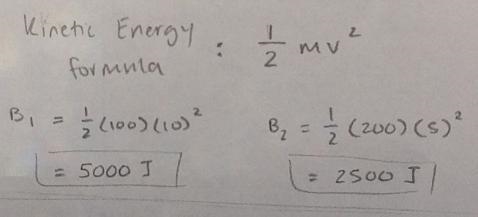 Kinetic Energy formula : 1/2 mv²
B₁ = 1/2 (100)(10)²
= 5000 J
B₂ = 1/2 (200)(5)²
= 2500 J